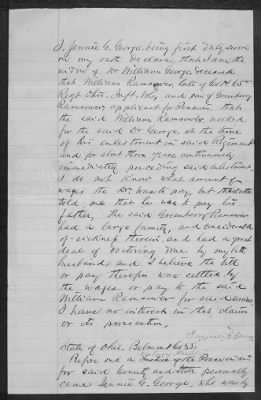 I, Jennie G. George, being first duly sworn
on my oath declare, that I am the
widow of Dr William George deceased
that William Ramsower, late of Co H. 65th
Regt Ohio. Inft. Vols, and son of Greenberry
Ramsower applicant for Pension that
the said William Ramsower, worked
for the said Dr George at the time
of his enlistment in said Regiment
and for about three years continuously
immediately preceding said enlistment.
I do not know what amount of
wages the Dr was to pay, but
told me that he was to pay his
father, the said Greenberry Ramsower
had a large family, and considerable
of sickness therein and had a good
deal of doctoring done by my late
husband and I believe the bill
or pay therefor was settled by
the wages or pay to the said
William Ramsower for said services
I have no interest in this claim
or its prosecution.
Jennie G. George
State of Ohio, Belmont Co SS.
Before me a Justice of the Peace in and
for said County and State personally
came Jennie G. George, who was by